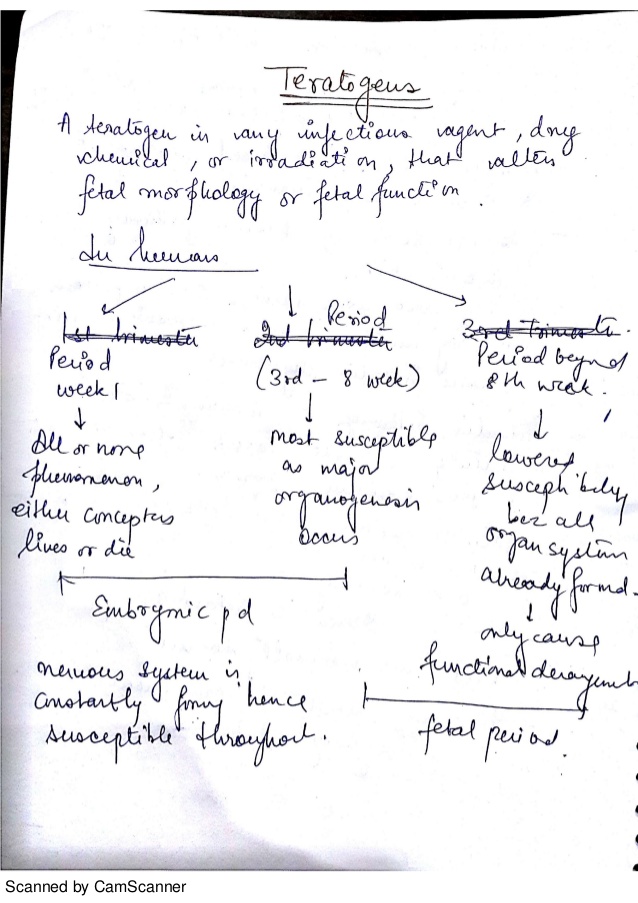 Teratogens
A teratogen is any infectious agent, drug
chemical, or irradiation, that alters
fetal morphology or fetal function.
In humans
1st trimester
Period
week 1
All or none
phenomenon,
either conceptus
lives or die
Period
2nd trimester
(3rd - 8 week)
most susceptible
as major
organogenesis
occurs
3rd Trimester.
Period beyond
8th week.
lowered
susceptibility
bcz all
organ system
already formed.
only cause
functional derangement
Embryonic pd
nervous system is
constantly forming hence
susceptible throughout.
fetal period.
Scanned by CamScanner